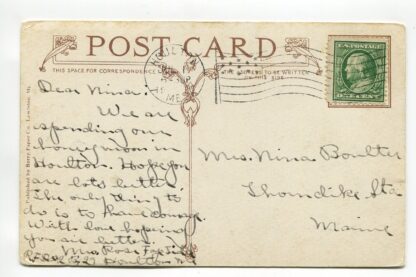 POST CARD
THIS SPACE FOR CORRESPONDENCE
THE ADDRESS TO BE WRITTEN
ON THIS SIDE
HOULTON
ME.
U.S. POSTAGE
Dear Nina:
We are
spending our
honeymoon in
Houlton. Hope you
are lots better
The only thing to
do is to have courage.
With love hoping
you are better.
Mrs Rose
Houlton Me
Mrs. Nina Boulter
Thorndike, Sta
Maine